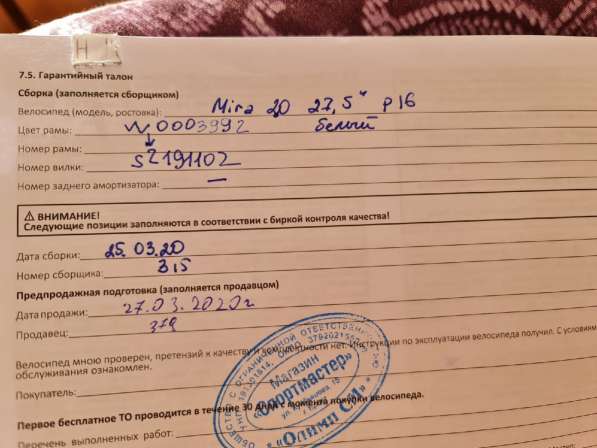 7.5. Гарантийный талон
Сборка (заполняется сборщиком)
Велосипед (модель, ростовка): Mira 2,0 27,5" р16
Цвет рамы: N0003992 белый
Номер рамы:
Номер вилки: S2191102
Номер заднего амортизатора: —
⚠ ВНИМАНИЕ!
Следующие позиции заполняются в соответствии с биркой контроля качества!
Дата сборки: 25.03.20
Номер сборщика: 315
Предпродажная подготовка (заполняется продавцом)
Дата продажи: 27.03.2020г
Продавец: 379
Велосипед мною проверен, претензий к качеству и комплектности нет. Инструкции по эксплуатации велосипеда получил. С условиями
обслуживания ознакомлен.
Покупатель:
Первое бесплатное ТО проводится в течение 30 дней с момента покупки велосипеда.
Перечень выполненных работ:
Магазин
«Спортмастер»
* «Олимп СМ» *